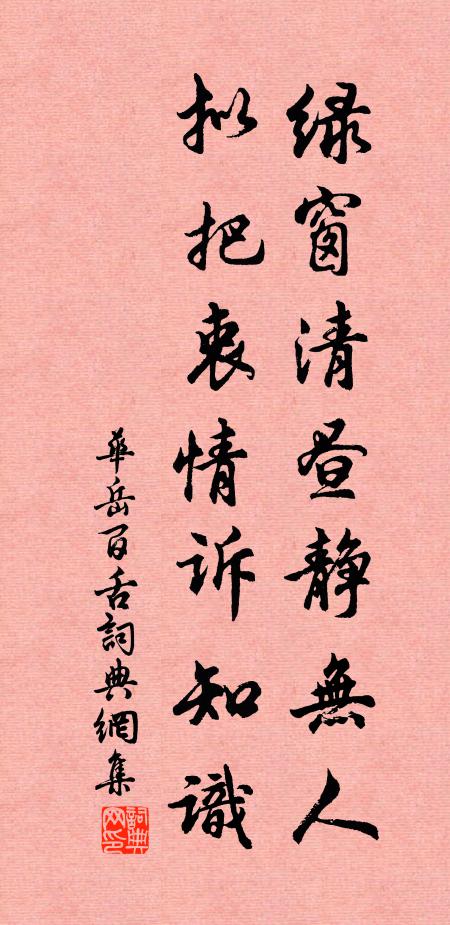 绿窗清昼静無人
拟把衷情诉知識
華岳百舌詞典網集
詞典网印